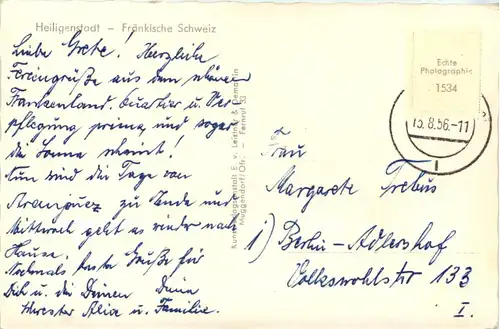 Heiligenstadt – Fränkische Schweiz
Liebe Grete! Herzliche
Feriengrüße aus dem schönen
Frankenland. Quartier u. Ver
pflegung prima, und sogar
die Sonne scheint!
Nun sind die Tage von
Aranjuez zu Ende und
Mittwoch geht es wieder nach
Hause.
Nochmals beste Grüße für
Dich u. die Deinen Deine
Schwester u. Familie.
Kunstverlagsanstalt E. v. Leistner & Demartin
Muggendorf/Ofr. – Fernruf 53
Echte
Photographie
1534
15.8.56.-11
Frau
Margarete Trebus
1) Berlin-Adlershof
Volkswohlstr 133
I.